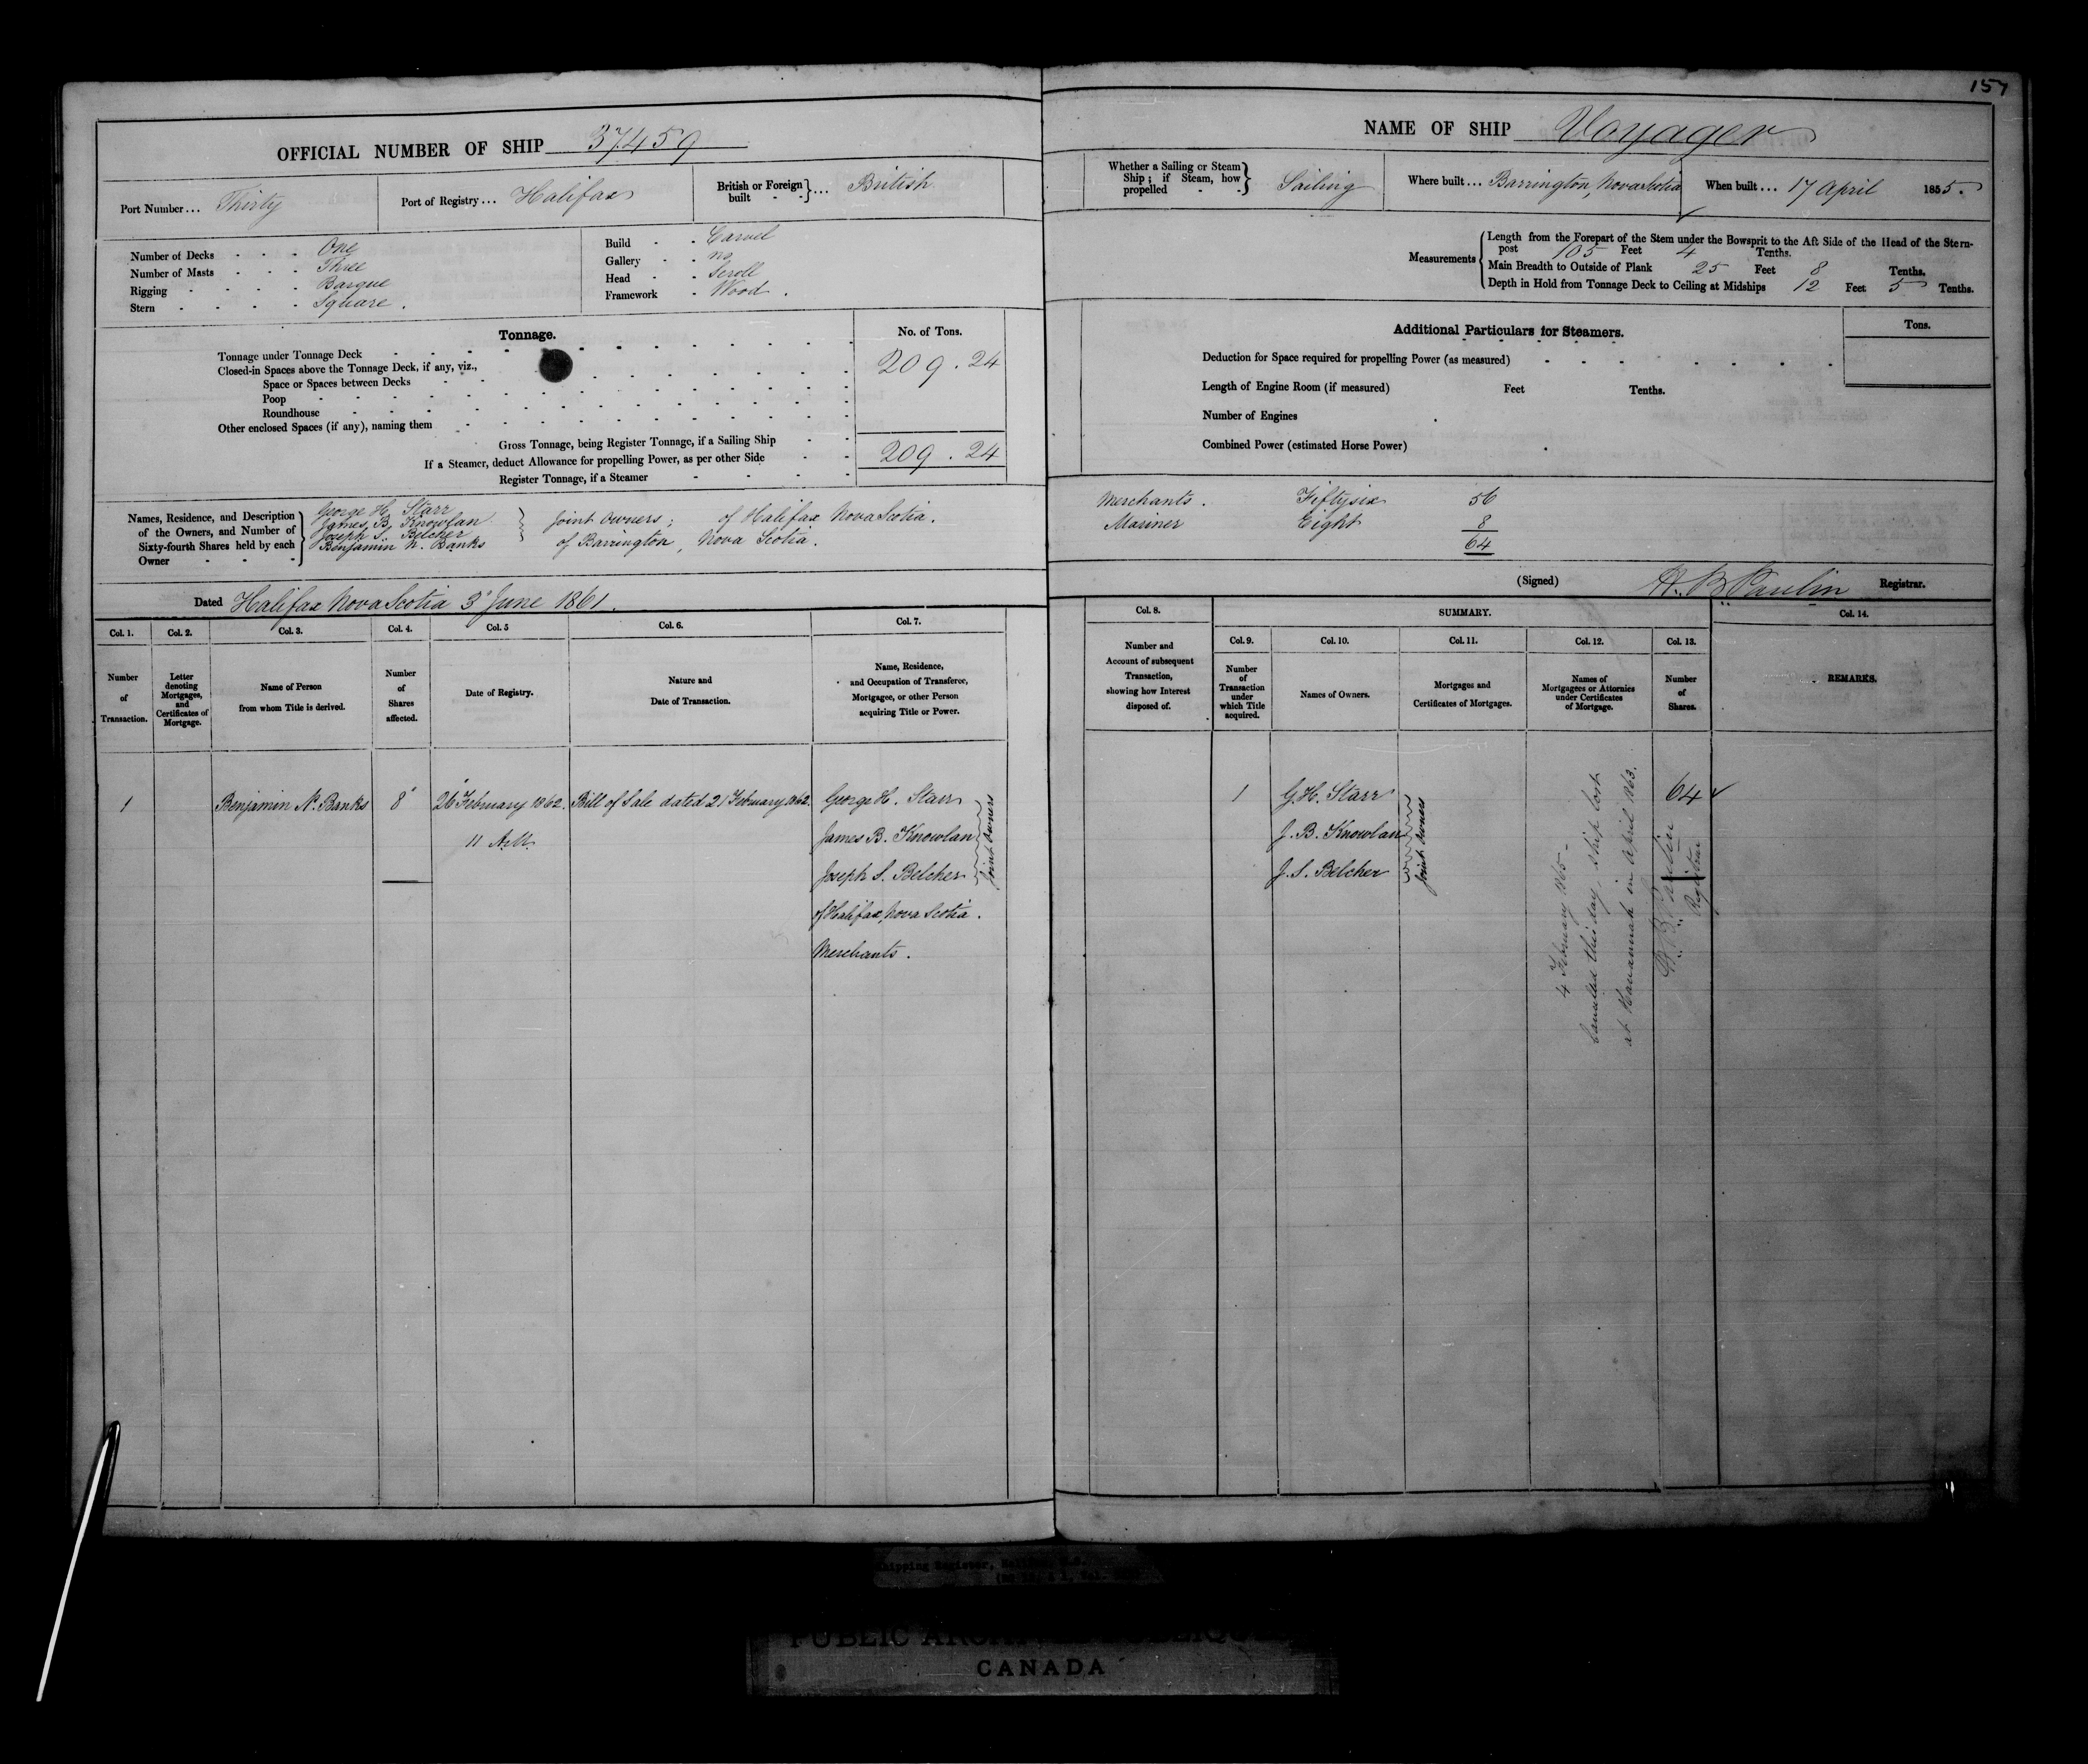 157
OFFICIAL NUMBER OF SHIP 37459
Port Number... Thirty
Port of Registry... Halifax
British or Foreign built - - } ... British
Number of Decks - - - One
Number of Masts - - - Three
Rigging - - - - Barque
Stern - - - - Square.
Build - - Carvel
Gallery - - no
Head - - Scroll
Framework - Wood.
Tonnage.
No. of Tons.
Tonnage under Tonnage Deck
209.24
Closed-in Spaces above the Tonnage Deck, if any, viz.,
Space or Spaces between Decks
Poop
Roundhouse
Other enclosed Spaces (if any), naming them
Gross Tonnage, being Register Tonnage, if a Sailing Ship
If a Steamer, deduct Allowance for propelling Power, as per other Side
209.24
Register Tonnage, if a Steamer
Names, Residence, and Description
of the Owners, and Number of
Sixty-fourth Shares held by each
Owner
George H. Starr
James B. Knowlan
Joseph S. Belcher
Benjamin N. Banks
Joint Owners; of Halifax Nova Scotia.
of Barrington, Nova Scotia.
Dated Halifax Nova Scotia 3d June 1861.
Col. 1.
Number
of
Transaction.
Col. 2.
Letter
denoting
Mortgages,
and
Certificates of
Mortgage.
Col. 3.
Name of Person
from whom Title is derived.
Col. 4.
Number
of
Shares
affected.
Col. 5
Date of Registry.
Col. 6.
Nature and
Date of Transaction.
Col. 7.
Name, Residence,
and Occupation of Transferee,
Mortgagee, or other Person
acquiring Title or Power.
1
Benjamin N. Banks
8
26 February 1862.
11 A.M.
Bill of Sale dated 21 February 1862.
George H. Starr
James B. Knowlan
Joseph S. Belcher
Joint Owners
of Halifax, Nova Scotia.
Merchants.
NAME OF SHIP Voyager
Whether a Sailing or Steam
Ship; if Steam, how
propelled - -
Sailing
Where built... Barrington, Nova Scotia
When built... 17 April 1855.
Measurements
Length from the Forepart of the Stem under the Bowsprit to the Aft Side of the Head of the Stern-
post 105 Feet 4 Tenths.
Main Breadth to Outside of Plank 25 Feet 8 Tenths.
Depth in Hold from Tonnage Deck to Ceiling at Midships 12 Feet 5 Tenths.
Additional Particulars for Steamers.
Tons.
Deduction for Space required for propelling Power (as measured)
Length of Engine Room (if measured) Feet Tenths.
Number of Engines
Combined Power (estimated Horse Power)
Merchants. Fiftysix 56
Mariner Eight 8
64
(Signed) H. B. Paulin Registrar.
Col. 8.
Number and
Account of subsequent
Transaction,
showing how Interest
disposed of.
SUMMARY.
Col. 9.
Number
of
Transaction
under
which Title
acquired.
Col. 10.
Names of Owners.
Col. 11.
Mortgages and
Certificates of Mortgages.
Col. 12.
Names of
Mortgagees or Attornies
under Certificates
of Mortgage.
Col. 13.
Number
of
Shares.
Col. 14.
REMARKS.
1
G. H. Starr
J. B. Knowlan
J. S. Belcher
Joint Owners
64
4 February 1865 -
Cancelled this day, ship lost
at Havannah in April 1863.
H. B. Paulin
Registrar
Shipping Register,
CANADA